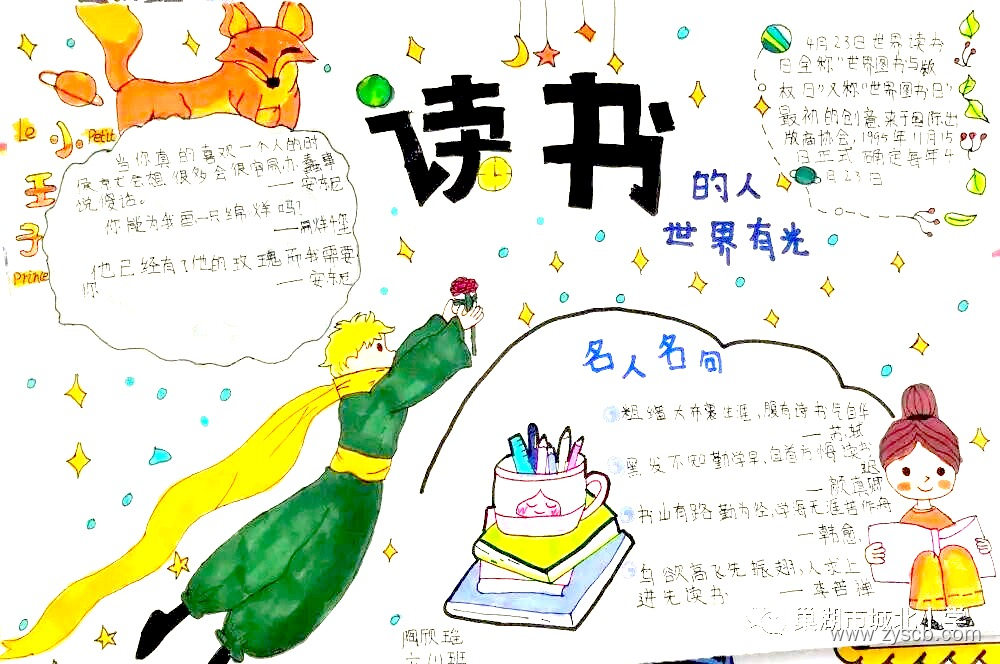 读书
的人
世界有光
Le
小
Petit
王
子
Prince
当你真的喜欢一个人的时
很多会很容易办蠢事
说傻话。
你能为我画一只绵羊吗?
他已经有了他的玫瑰而我需要
你
4月23日世界读书
日全称"世界图书与版
权日"又称"世界图书日"
最初的创意来于国际出
版商协会,1995年11月15
日正式确定每年4
月23日
名人名句
粗缯大布裹生涯,腹有诗书气自华
—苏轼
黑发不知勤学早,白首方悔读书
迟
—颜真卿
书山有路勤为径,学海无涯苦作舟
—韩愈
鸟欲高飞先振翅,人求上
进先读书 —李苦禅
陶欣瑶
六(1)班
巢湖市城北小学
www.zyscb.com